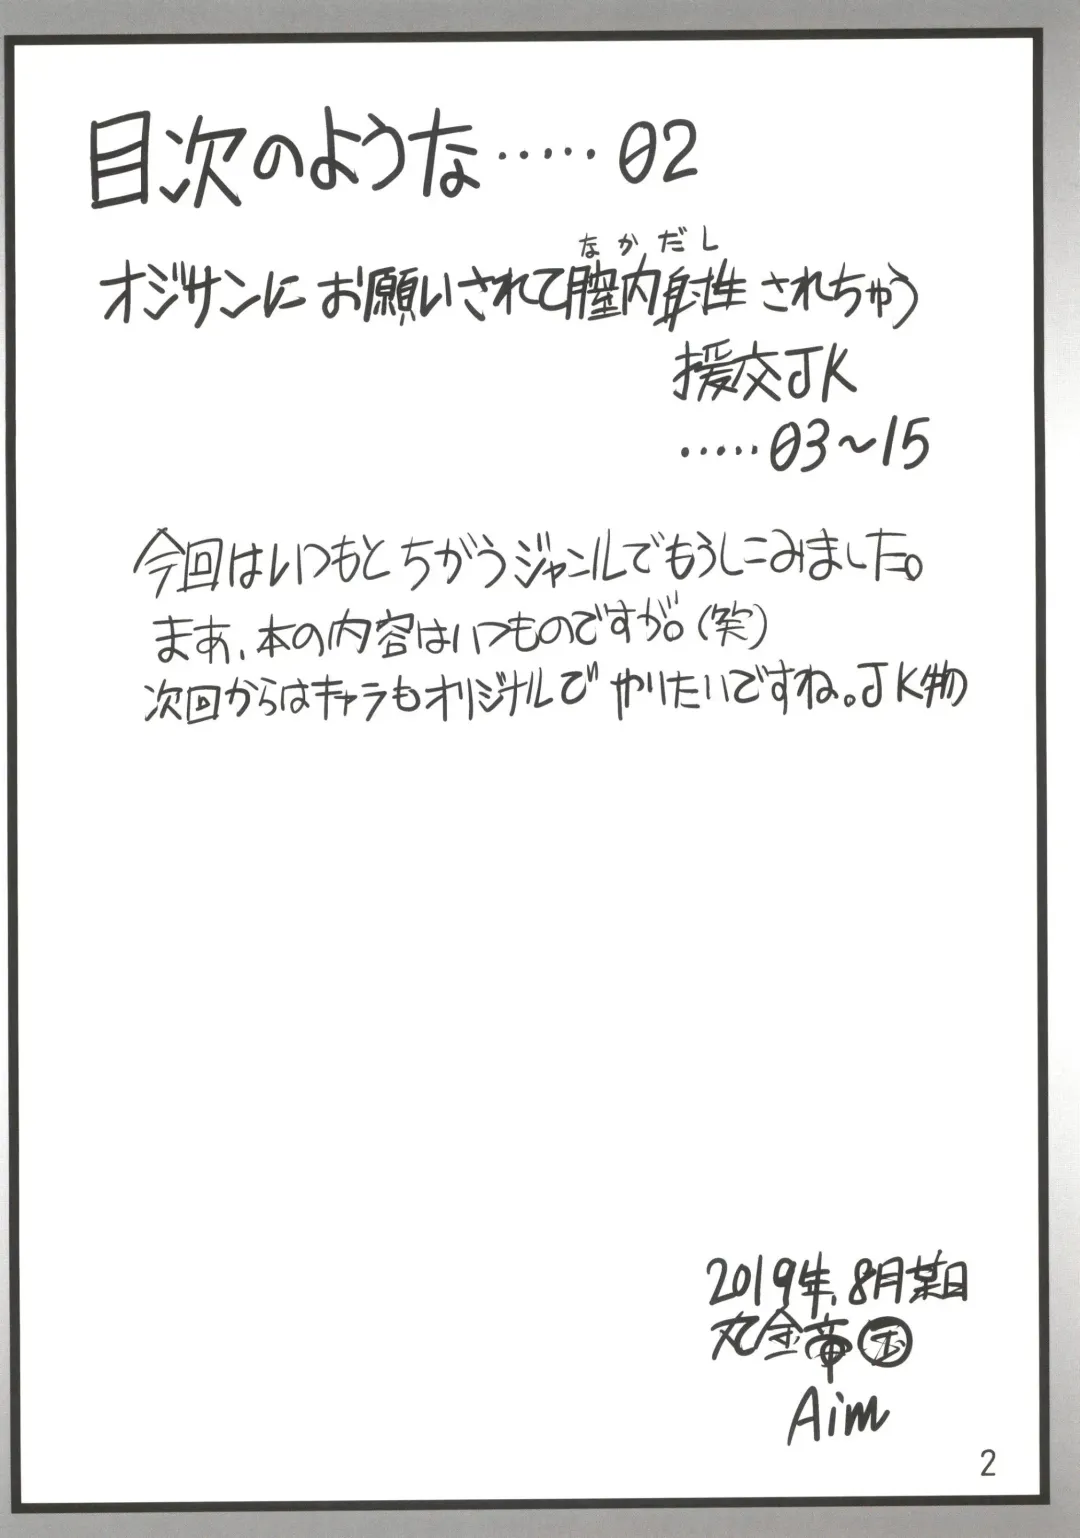 目次のような・・・・・02
なかだし
オジサンにお願いされて膣内射性されちゃう
援交JK
・・・・・03〜15
今回はいつもとちがうジャンルでもうしこみました。
まあ、本の内容はいつものですが。(笑)
次回からはキャラもオリジナルでやりたいですね。JK物
2019年、8月某日
丸金帝
Aim
2